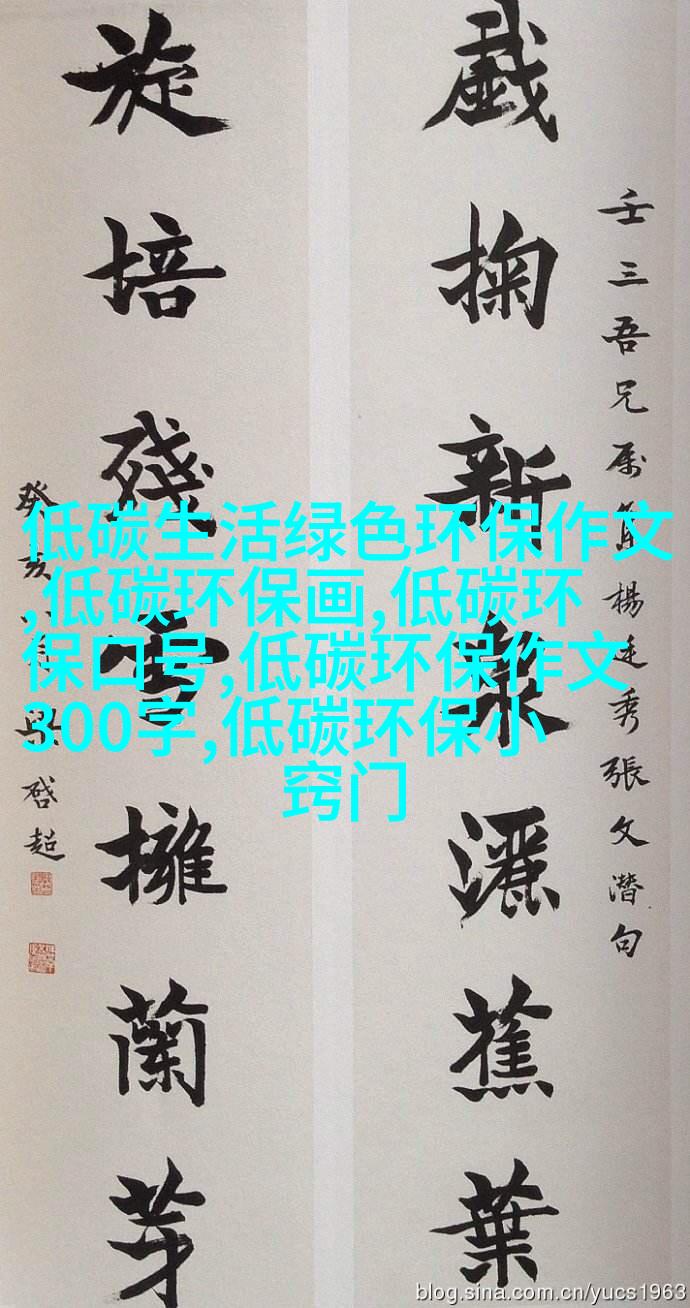 戲掬新泉灑蕉葉
旋培殘雪擁蘭芽
壬三吾兄属集楊廷秀張文潛句
癸亥 梁啓超
低碳生活绿色环保作文
,低碳环保画,低碳环
保口号,低碳环保作文
300字,低碳环保小
窍门
blog.sina.com.cn/yucs1963